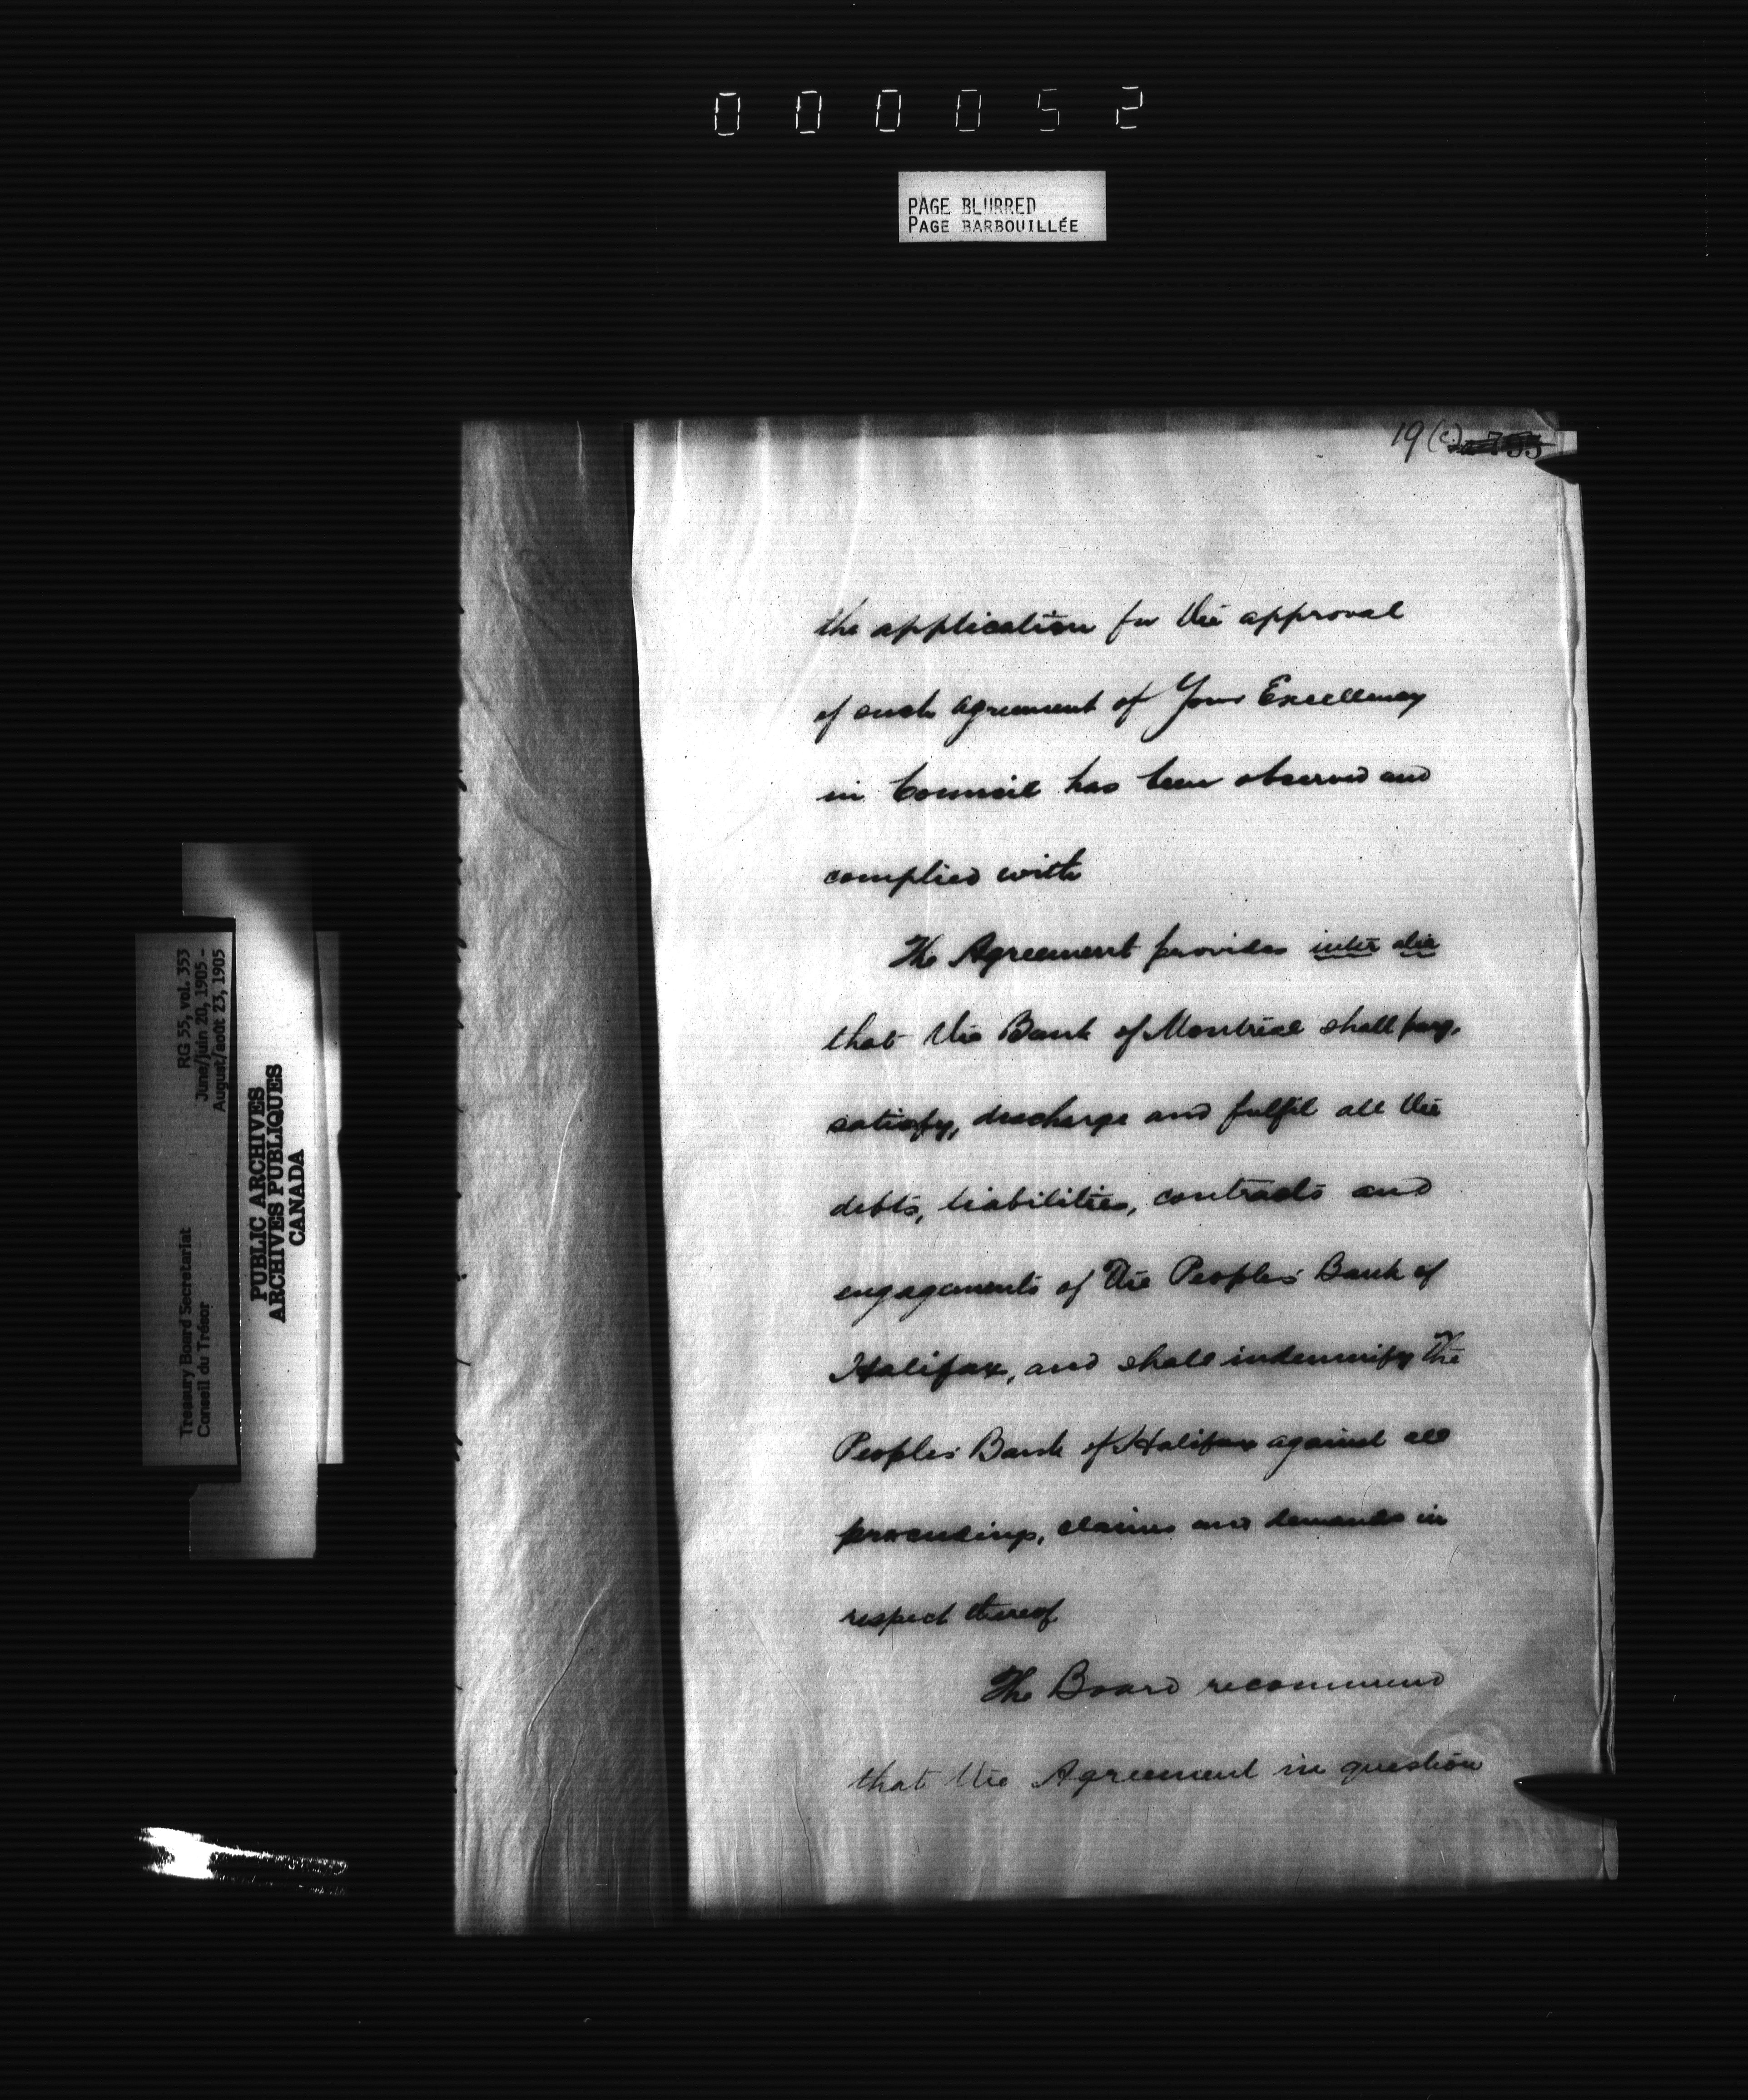 000052
PAGE BLURRED
PAGE BARBOUILLÉE
19 (c)
the application for the approval
of such agreement of Your Excellency
in Council has been observed and
complied with
The Agreement provides inter alia
that the Bank of Montreal shall pay,
satisfy, discharge and fulfil all the
debts, liabilities, contracts and
engagements of the Peoples' Bank of
Halifax, and shall indemnify the
Peoples' Bank of Halifax against all
proceedings, claims and demands in
respect thereof
The Board recommend
that the Agreement in question
Treasury Board Secretariat RG 55, vol. 353
Conseil du Trésor June/juin 20, 1905 -
August/août 23, 1905
PUBLIC ARCHIVES
ARCHIVES PUBLIQUES
CANADA